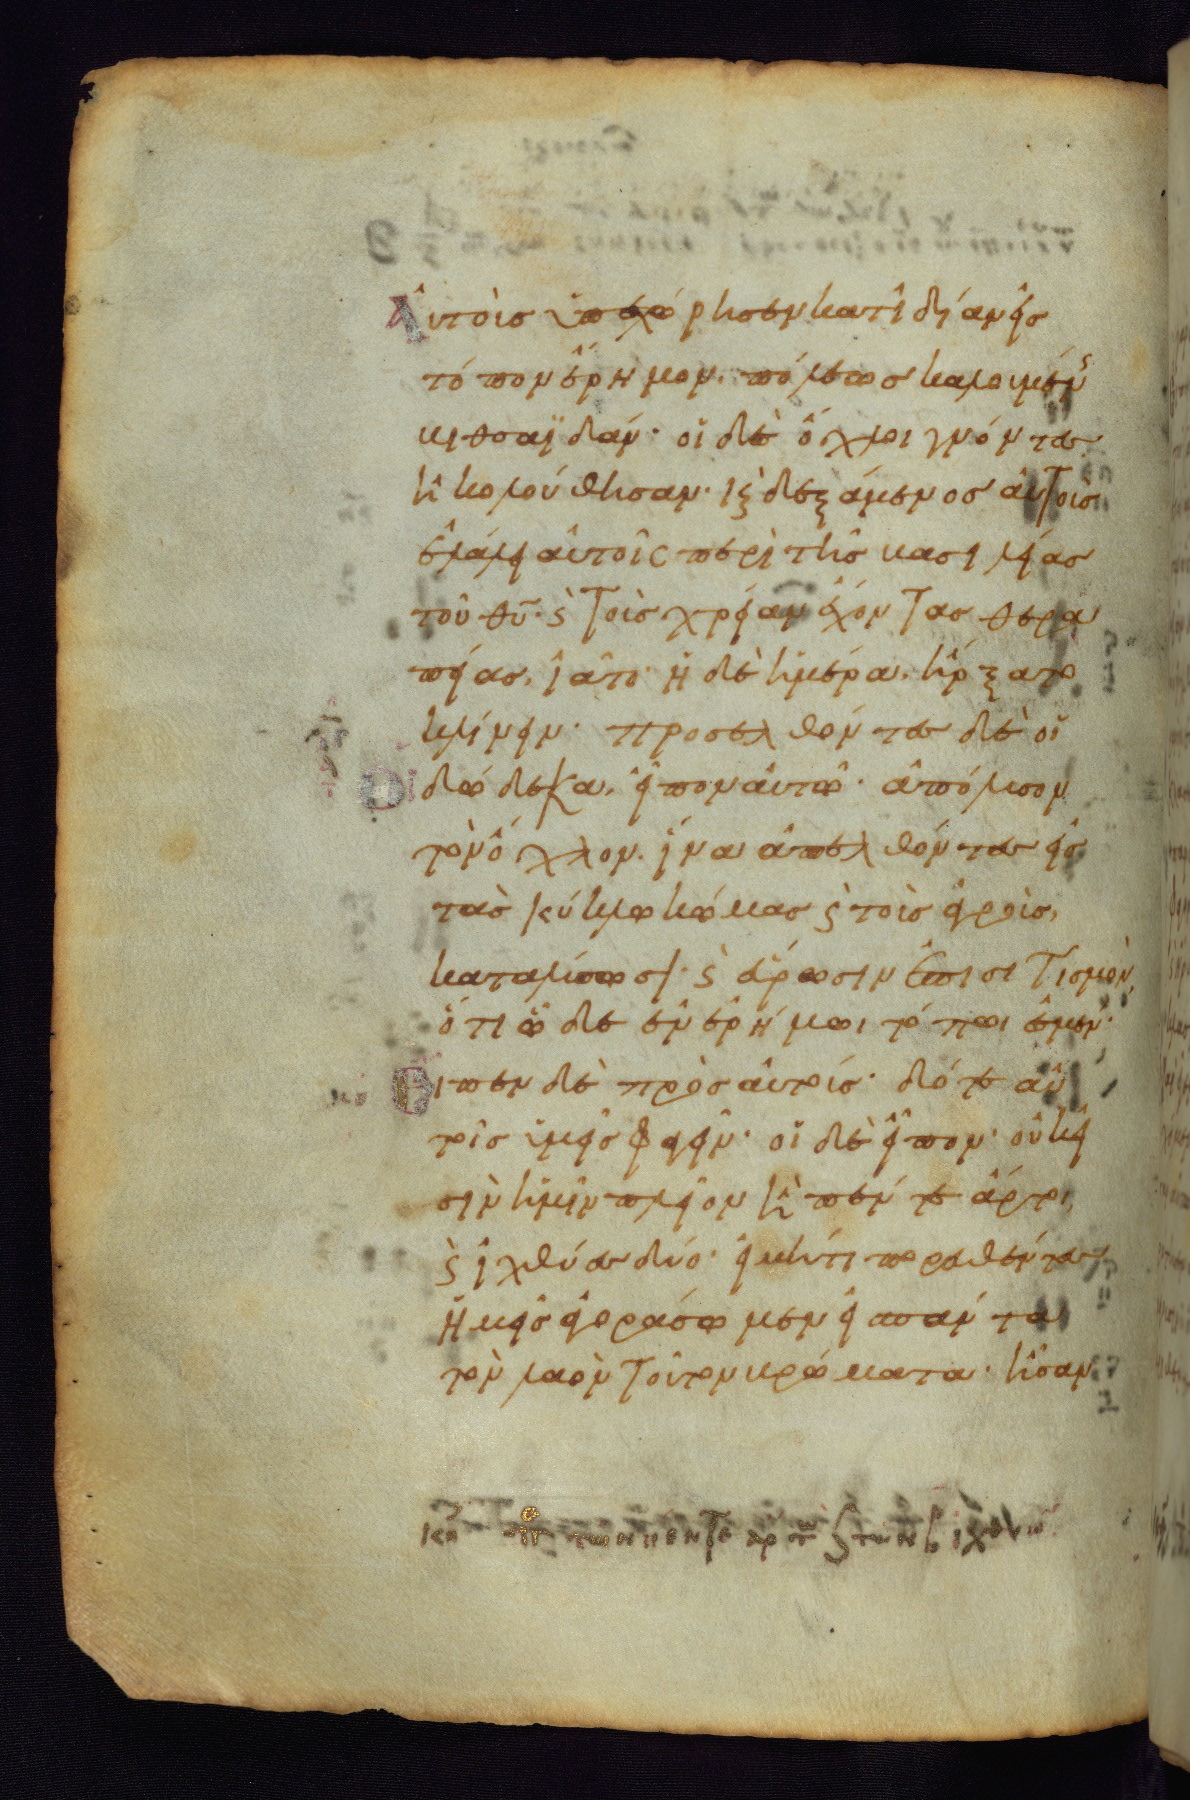 Αὐτοὺς ὑπεχώρησεν κατ ἰδίαν εἰς
τόπον ἔρημον. πόλεως καλουμένης
βηθσαϊδάν· οἱ δὲ ὄχλοι γνόντες
ἠκολούθησαν· ϗ δεξάμενος αὐτοὺς
ἐλάλει αὐτοῖς περὶ τῆς βασιλείας
τοῦ θυ̅· ϗ τοὺς χρείαν ἔχοντας θερα
πείας, ἰᾶτο· ἡ δὲ ἡμέρα, ἤρξατο
κλίνειν· προσελθόντες δὲ οἱ
δώδεκα, εἶπον αὐτῶ· ἀπόλυσον
τὸν ὄχλον. ἵνα ἀπελθόντες εἰς
τὰς κύκλω κώμας ϗ τοὺς ἀγροὺς,
καταλύσωσι· ϗ εὕρωσιν ἐπισιτισμὸν,
ὅτι ὧδε ἐν ἐρήμωι τόπωι ἐσμέν·
Ειπεν δὲ πρὸς αὐτούς· δότε αὐ
τοῖς ὑμεῖς φαγεῖν· οἱ δὲ εἶπον· οὐκ εἰ
σὶν ἡμῖν πλεῖον ἢ πέντε ἄρτοι,
ϗ ἰχθύες δύο· εἰ μήτι πορευθέντες
ἡμεῖς ἀγοράσωμεν εἰς πάντα
τὸν λαὸν τοῦτον βρώματα· ἦσαν
κη πε τῶν πεντε αρτ ϗ τῶν β ιχθυω